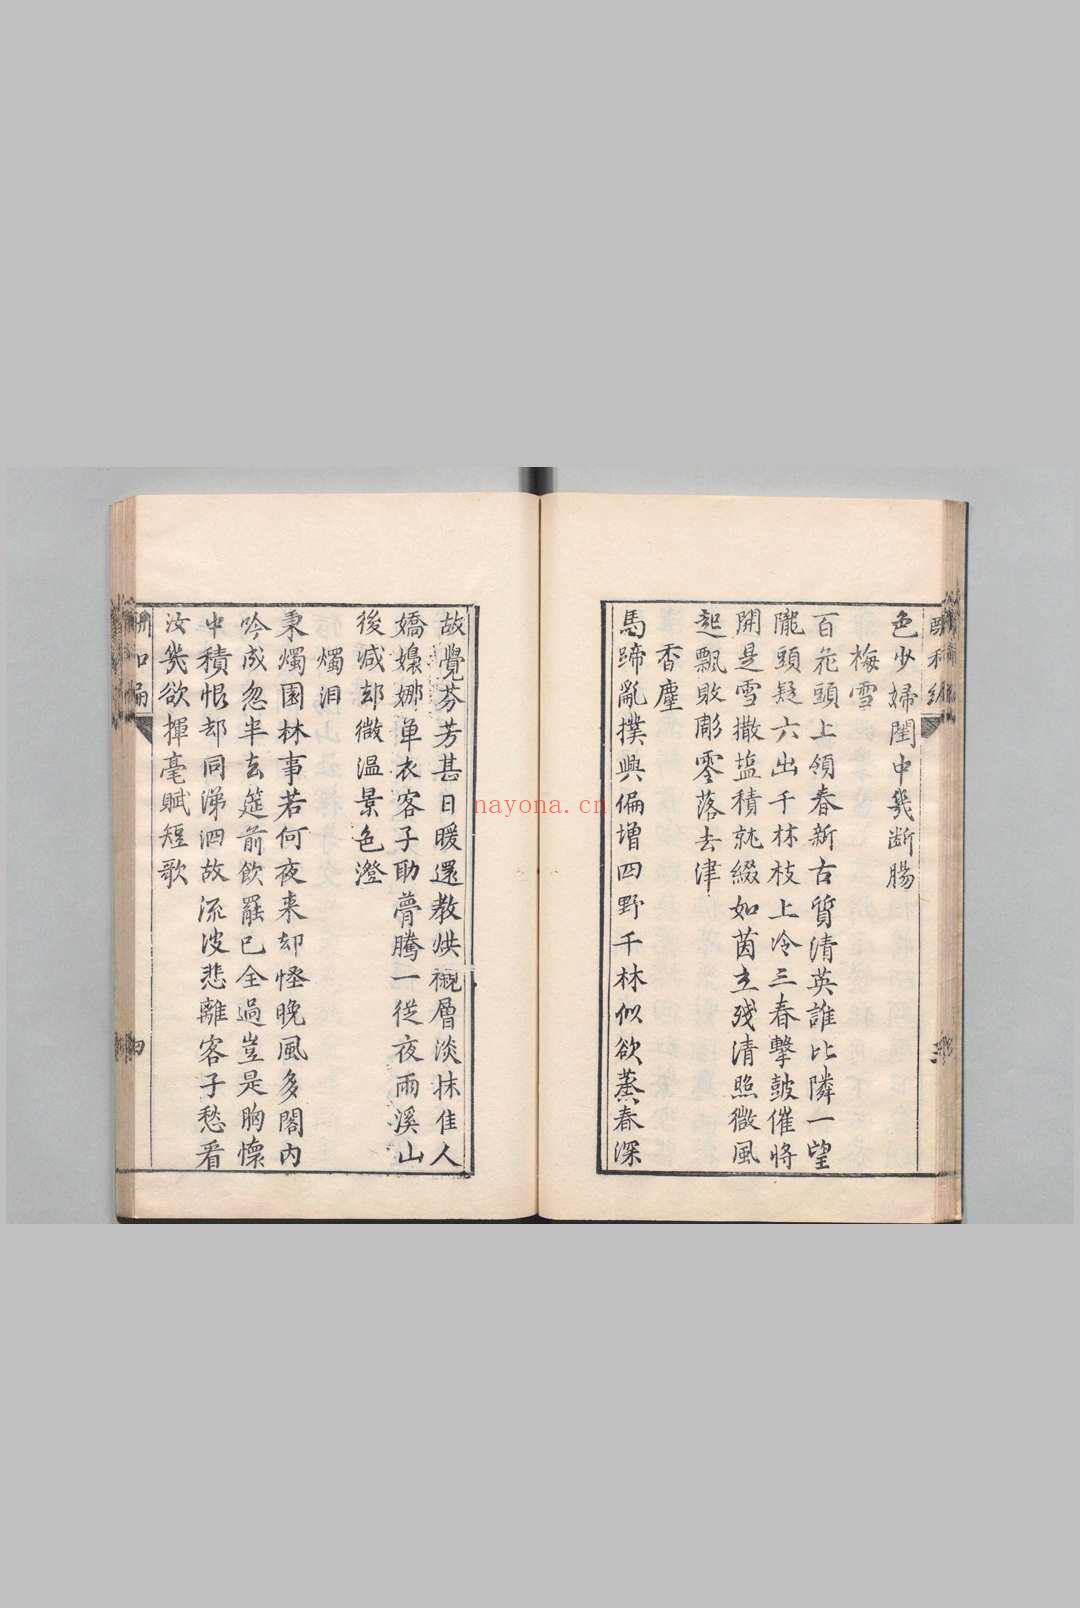 色少婦閨中幾断腸
梅雪
百花頭上領春新古質清英誰比隣一望
隴頭疑六出千林枝上冷三春擊皷催將
開是雪撒塩積就綴如茵立残清照微風
起飄敗彫零落去津
香塵
馬蹄亂撲興偏增四野千林似欲蒸春深
故覺芬芳甚日暖還教烘襯層淡抹佳人
嬌嬝娜単衣客子助瞢騰一從夜雨溪山
後减却微温景色澄
燭泪
秉燭園林事若何夜来却怪晚風多閤內
吟成忽半去筵前飲罷已全過豈是胸懷
中積恨却同涕泗故流波悲離客子愁看
汝幾欲揮毫賦短歌
四
nayona.cn